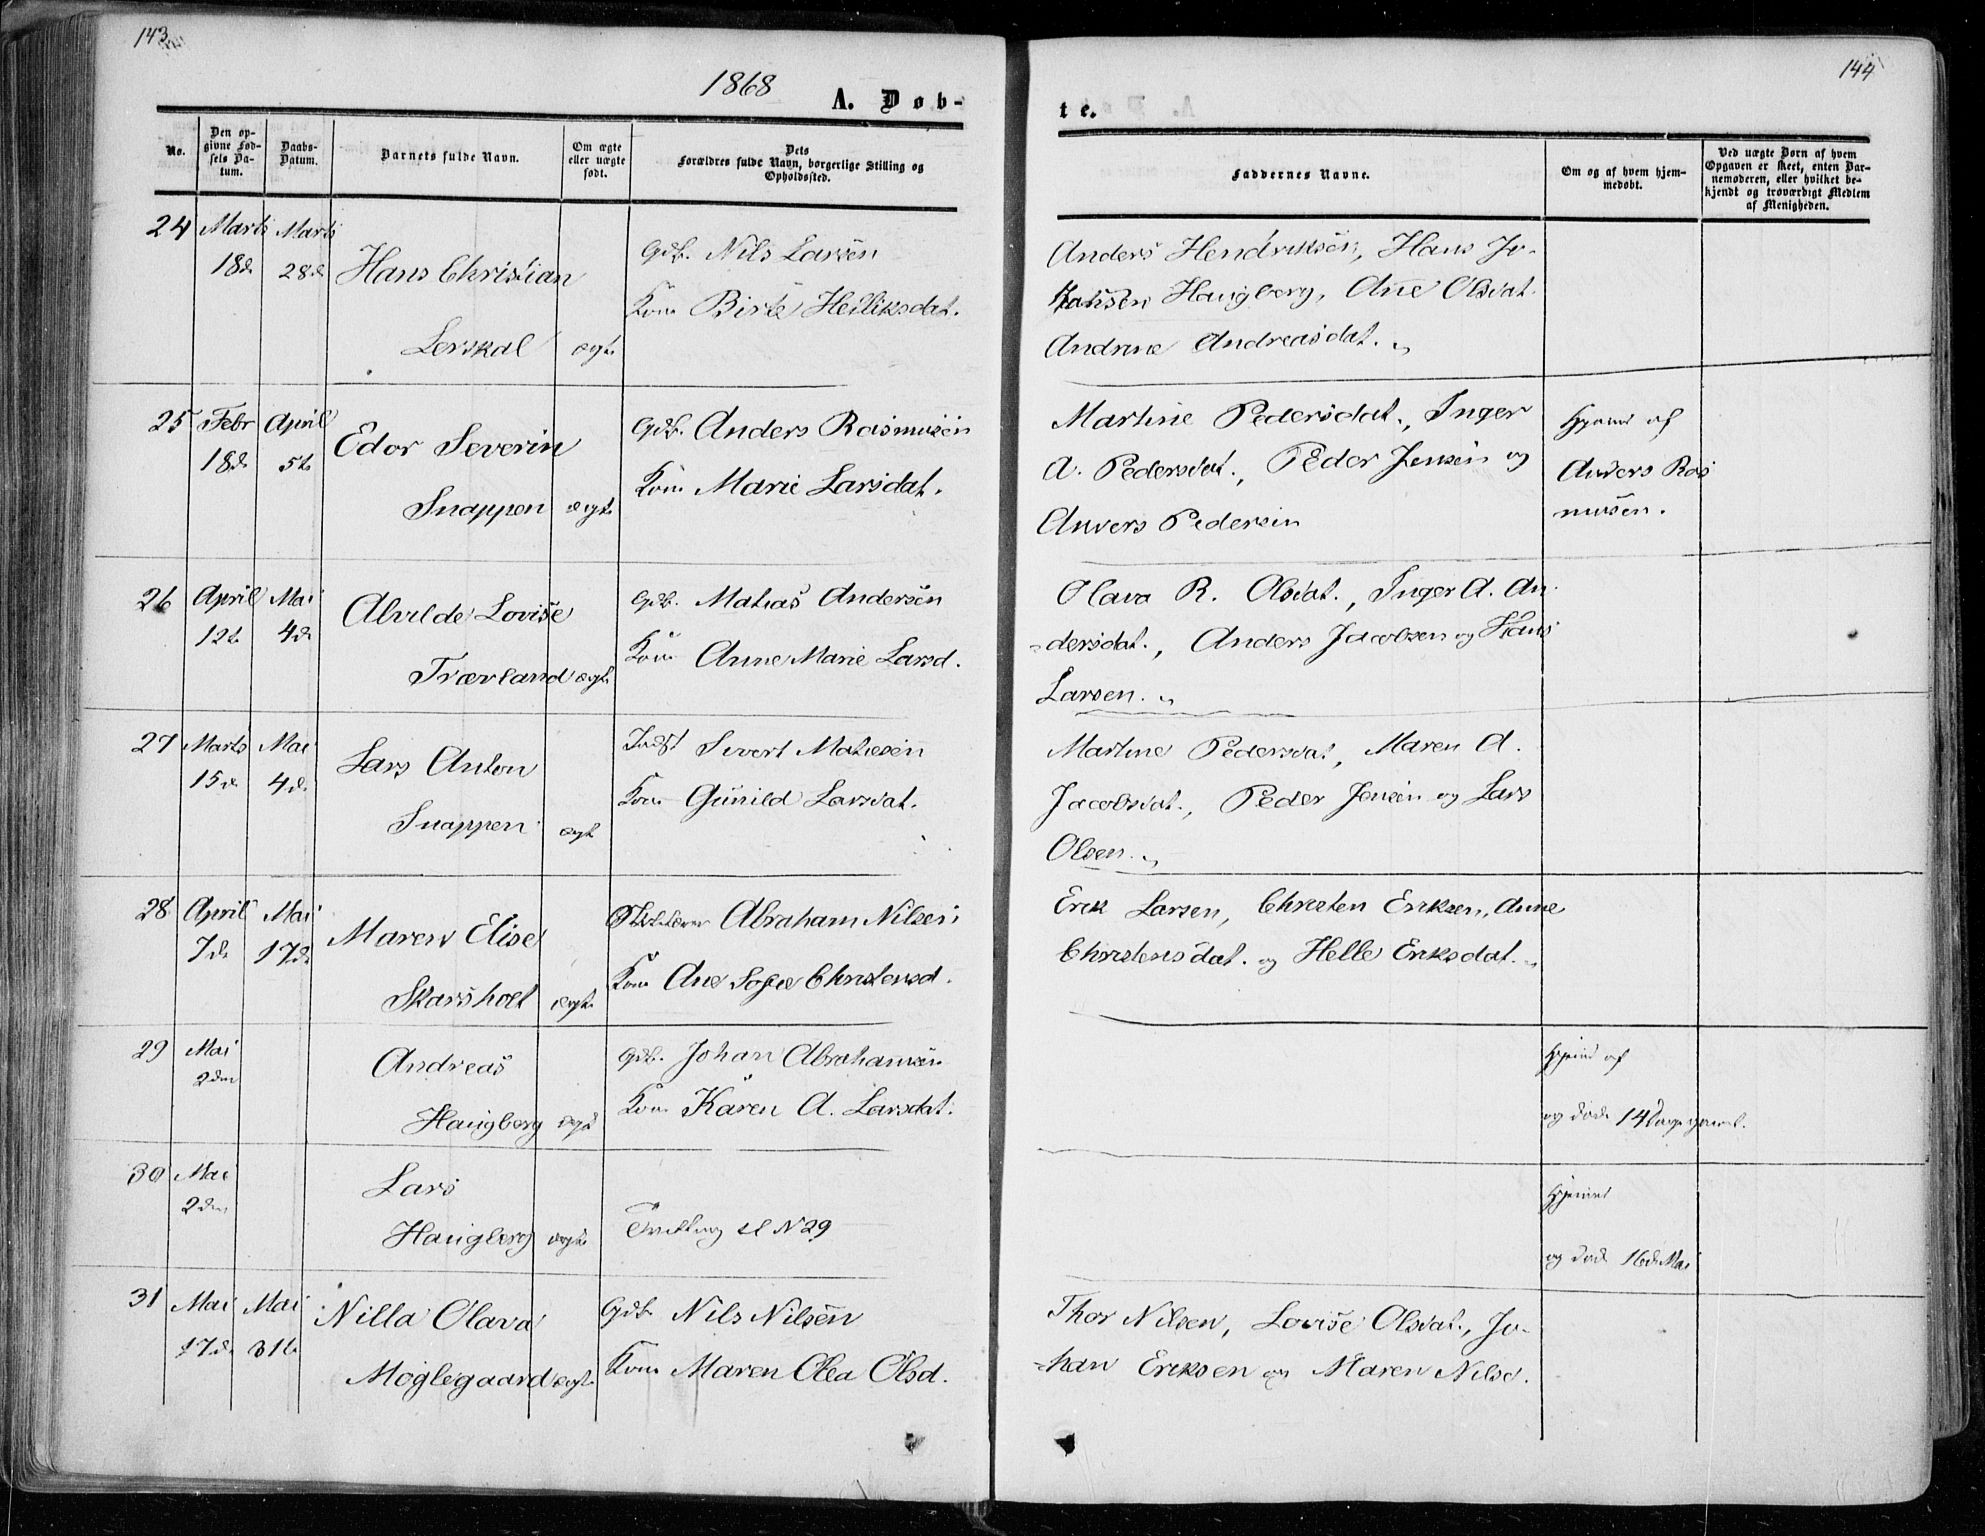 143
144
1868
A. Døb-
te.
No.
Den op-
givne Fød-
sels Da-
tum.
Daabs-
Datum.
Barnets fulde Navn.
Om ægte
eller uægte
født.
Dets
Forældres fulde Navn, borgerlige Stilling og
Opholdssted.
Faddernes Navne.
Om og af hvem hjem-
medøbt.
Ved uægte Børn af hvem
Opgaven er skeet, enten Bar-
nemoderen, eller hvilket be-
kjendt og troværdigt Medlem
af Menigheden.
24 Marts Marts
18de 28de Hans Christian
Lerskal ægte
Gdb. Nils Larsen
Kone Birte Heiliksdat.
Anders Hendriksen, Hans Jo-
hansen Haugberg, Ane Olsdat.
Andrine Andreasdat.
25 Febr April
18de 5te Edor Severin
Snappen ægte
Gdb. Anders Rasmusen
Kone Marie Larsdat.
Martine Pedersdat., Inger
A. Pedersdat., Peder Jensen og
Anders Pedersen
Hjemd af
Anders Ras
musen.
26 April Mai
12te 4de Alvilde Lovise
Træeland ægte
Gdb. Matias Andersen
Kone Anne Marie Larsd.
Olava R. Olsdat., Inger A. An-
dersdat., Anders Jacobsen og Hans
Larsen.
27 Marts Mai
15de 4de Lars Anton
Snappen ægte
Indst Sivert Matiesen
Kone Gunild Larsdat.
Martine Pedersdat, Maren A.
Jacobsdat., Peder Jensen og Lars
Olsen.
28 April Mai
7de 17de Maren Elise
Skarsholt ægte
Abraham Nilsen
Kone Ane Sofie Christensd.
Erik Larsen, Christen Eriksen, Anne
Christensdat. og Helle Eriksdat.
29 Mai
2den Andreas
Haugberg ægte
Gdb. Johan Abrahamsen
Kone Karen A. Larsdat.
Hjemd af
og døde 14 Dage gammel.
30 Mai
2den Lars
Haugberg ægte
Tvilling til N 29
Hjemmd
og døde 16de Mai
31 Mai Mai
17de 31te Nilla Olava
Møglegaard ægte
Gdb. Nils Nilsen
Kone Maren Olea Olsd.
Thor Nilsen, Lovise Olsdat., Jo-
han Eriksen og Maren Nilsd.